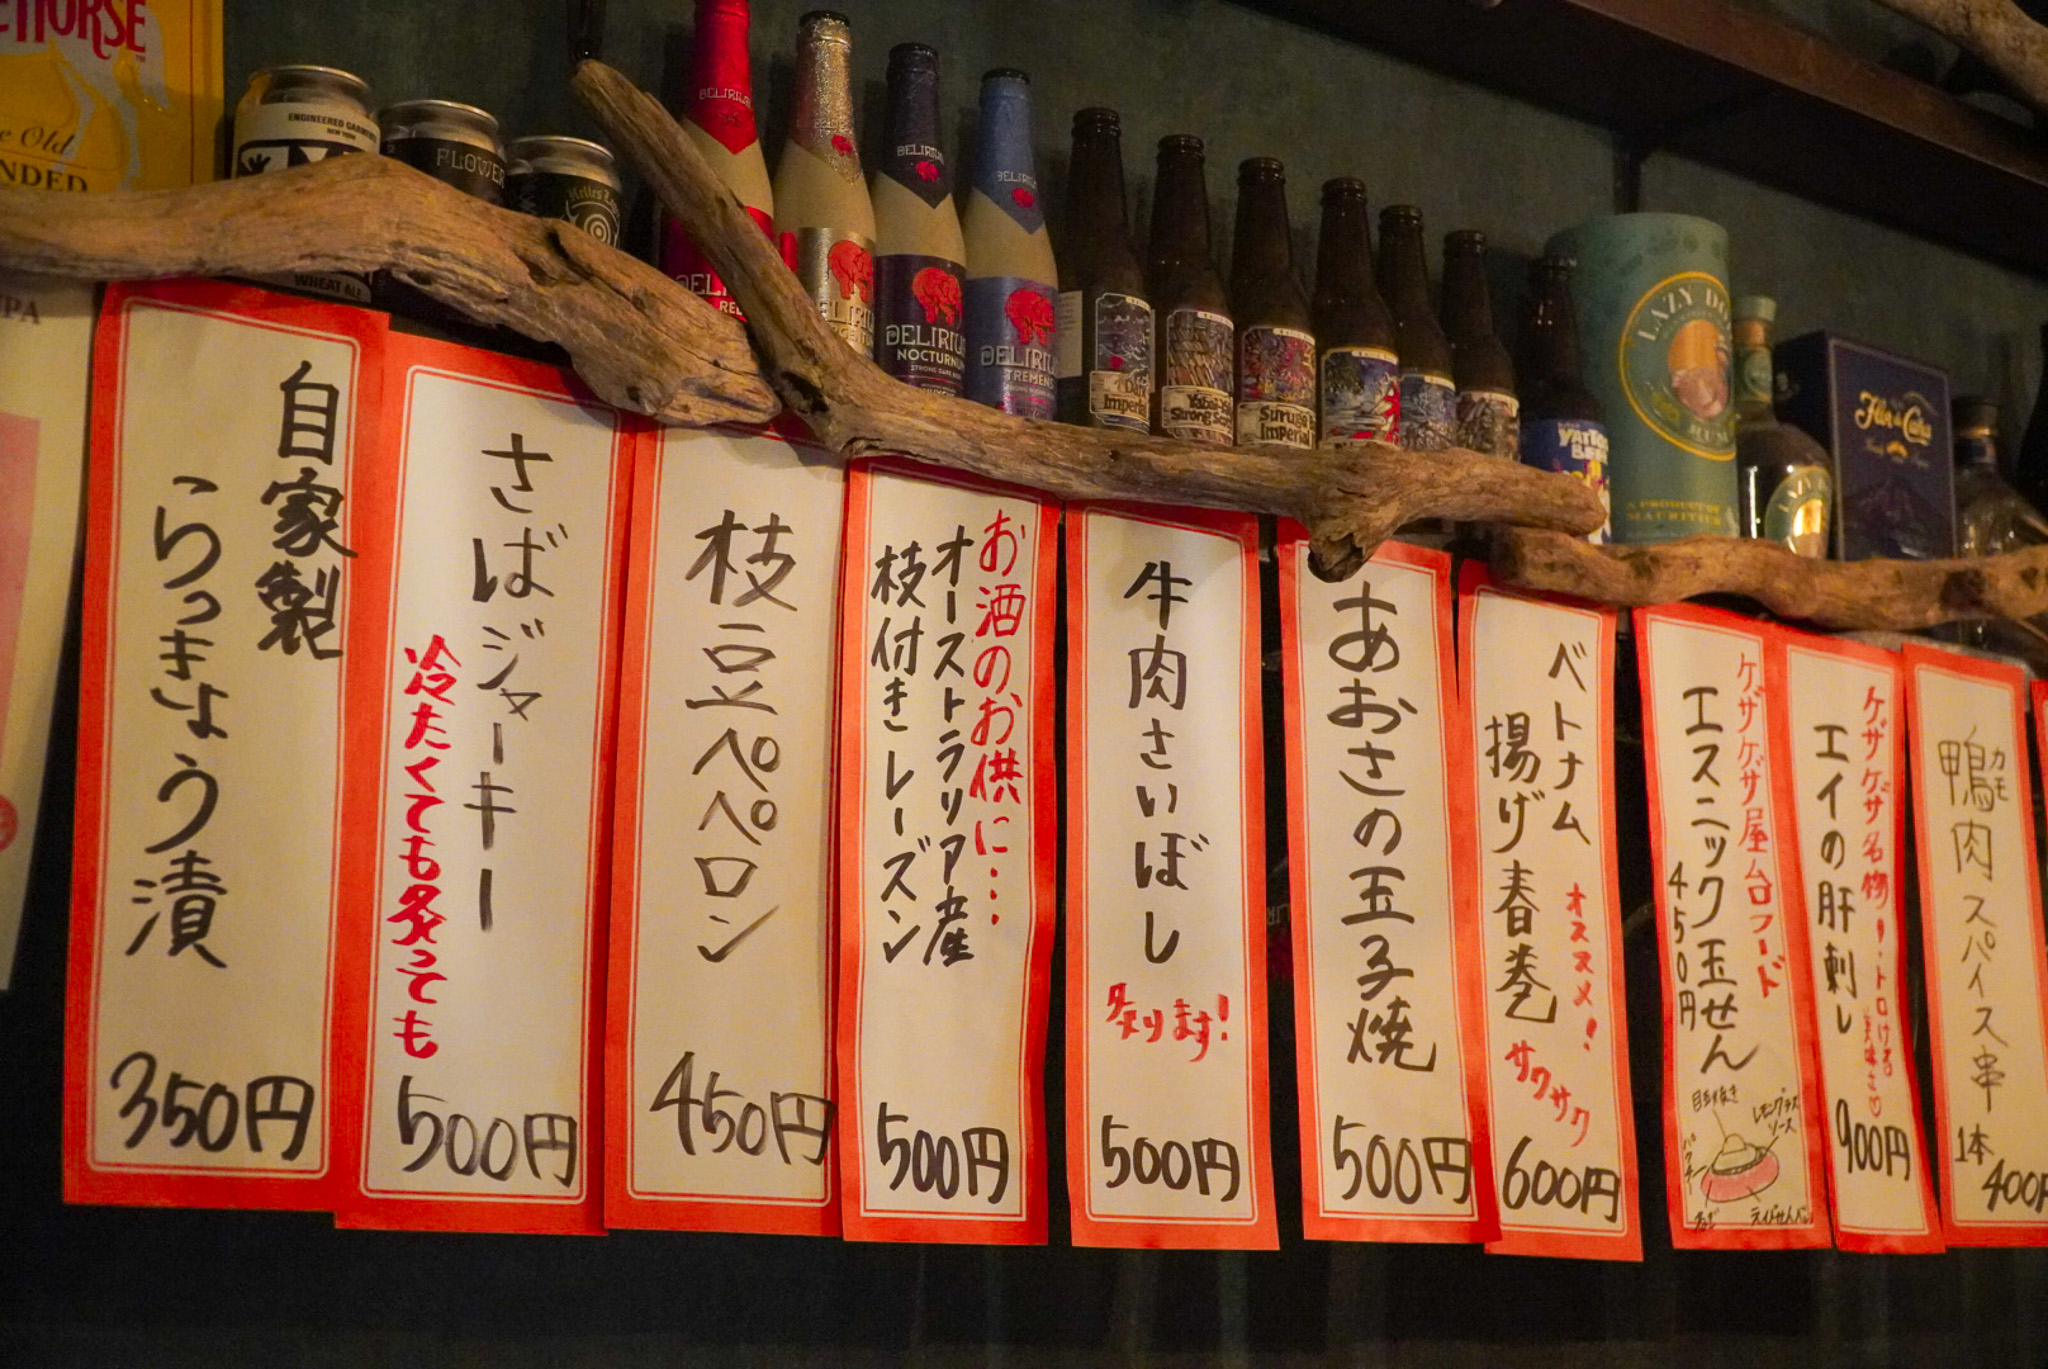 HORSE
Old
ENGINEERED GARMENTS
NEW YORK
WHEAT ALE
FLOWER
DELIRIUM
DELIRIUM
RED
DELIRIUM
DELIRIUM
NOCTURNUM
DELIRIUM
TREMENS
Imperial
Suruga
Imperial
LAZY
RUM
A PRODUCT OF
MAURITIUS
Flor de Caña
自家製
らっきょう漬
350円
さばジャーキー
冷たくても炙っても
500円
枝豆ペペロン
450円
お酒のお供に…
オーストラリア産
枝付きレーズン
500円
牛肉さいぼし
炙ります!
500円
あおさの玉子焼
500円
ベトナム
揚げ春巻
オススメ!
サクサク
600円
ケザケザ屋台フード
エスニック玉せん
450円
目玉焼き
レモングラス
ソース
パクチー
ケザケザ名物!トロける
美味さ♡
エイの肝刺し
900円
カモ
鴨肉スパイス串
1本
400円